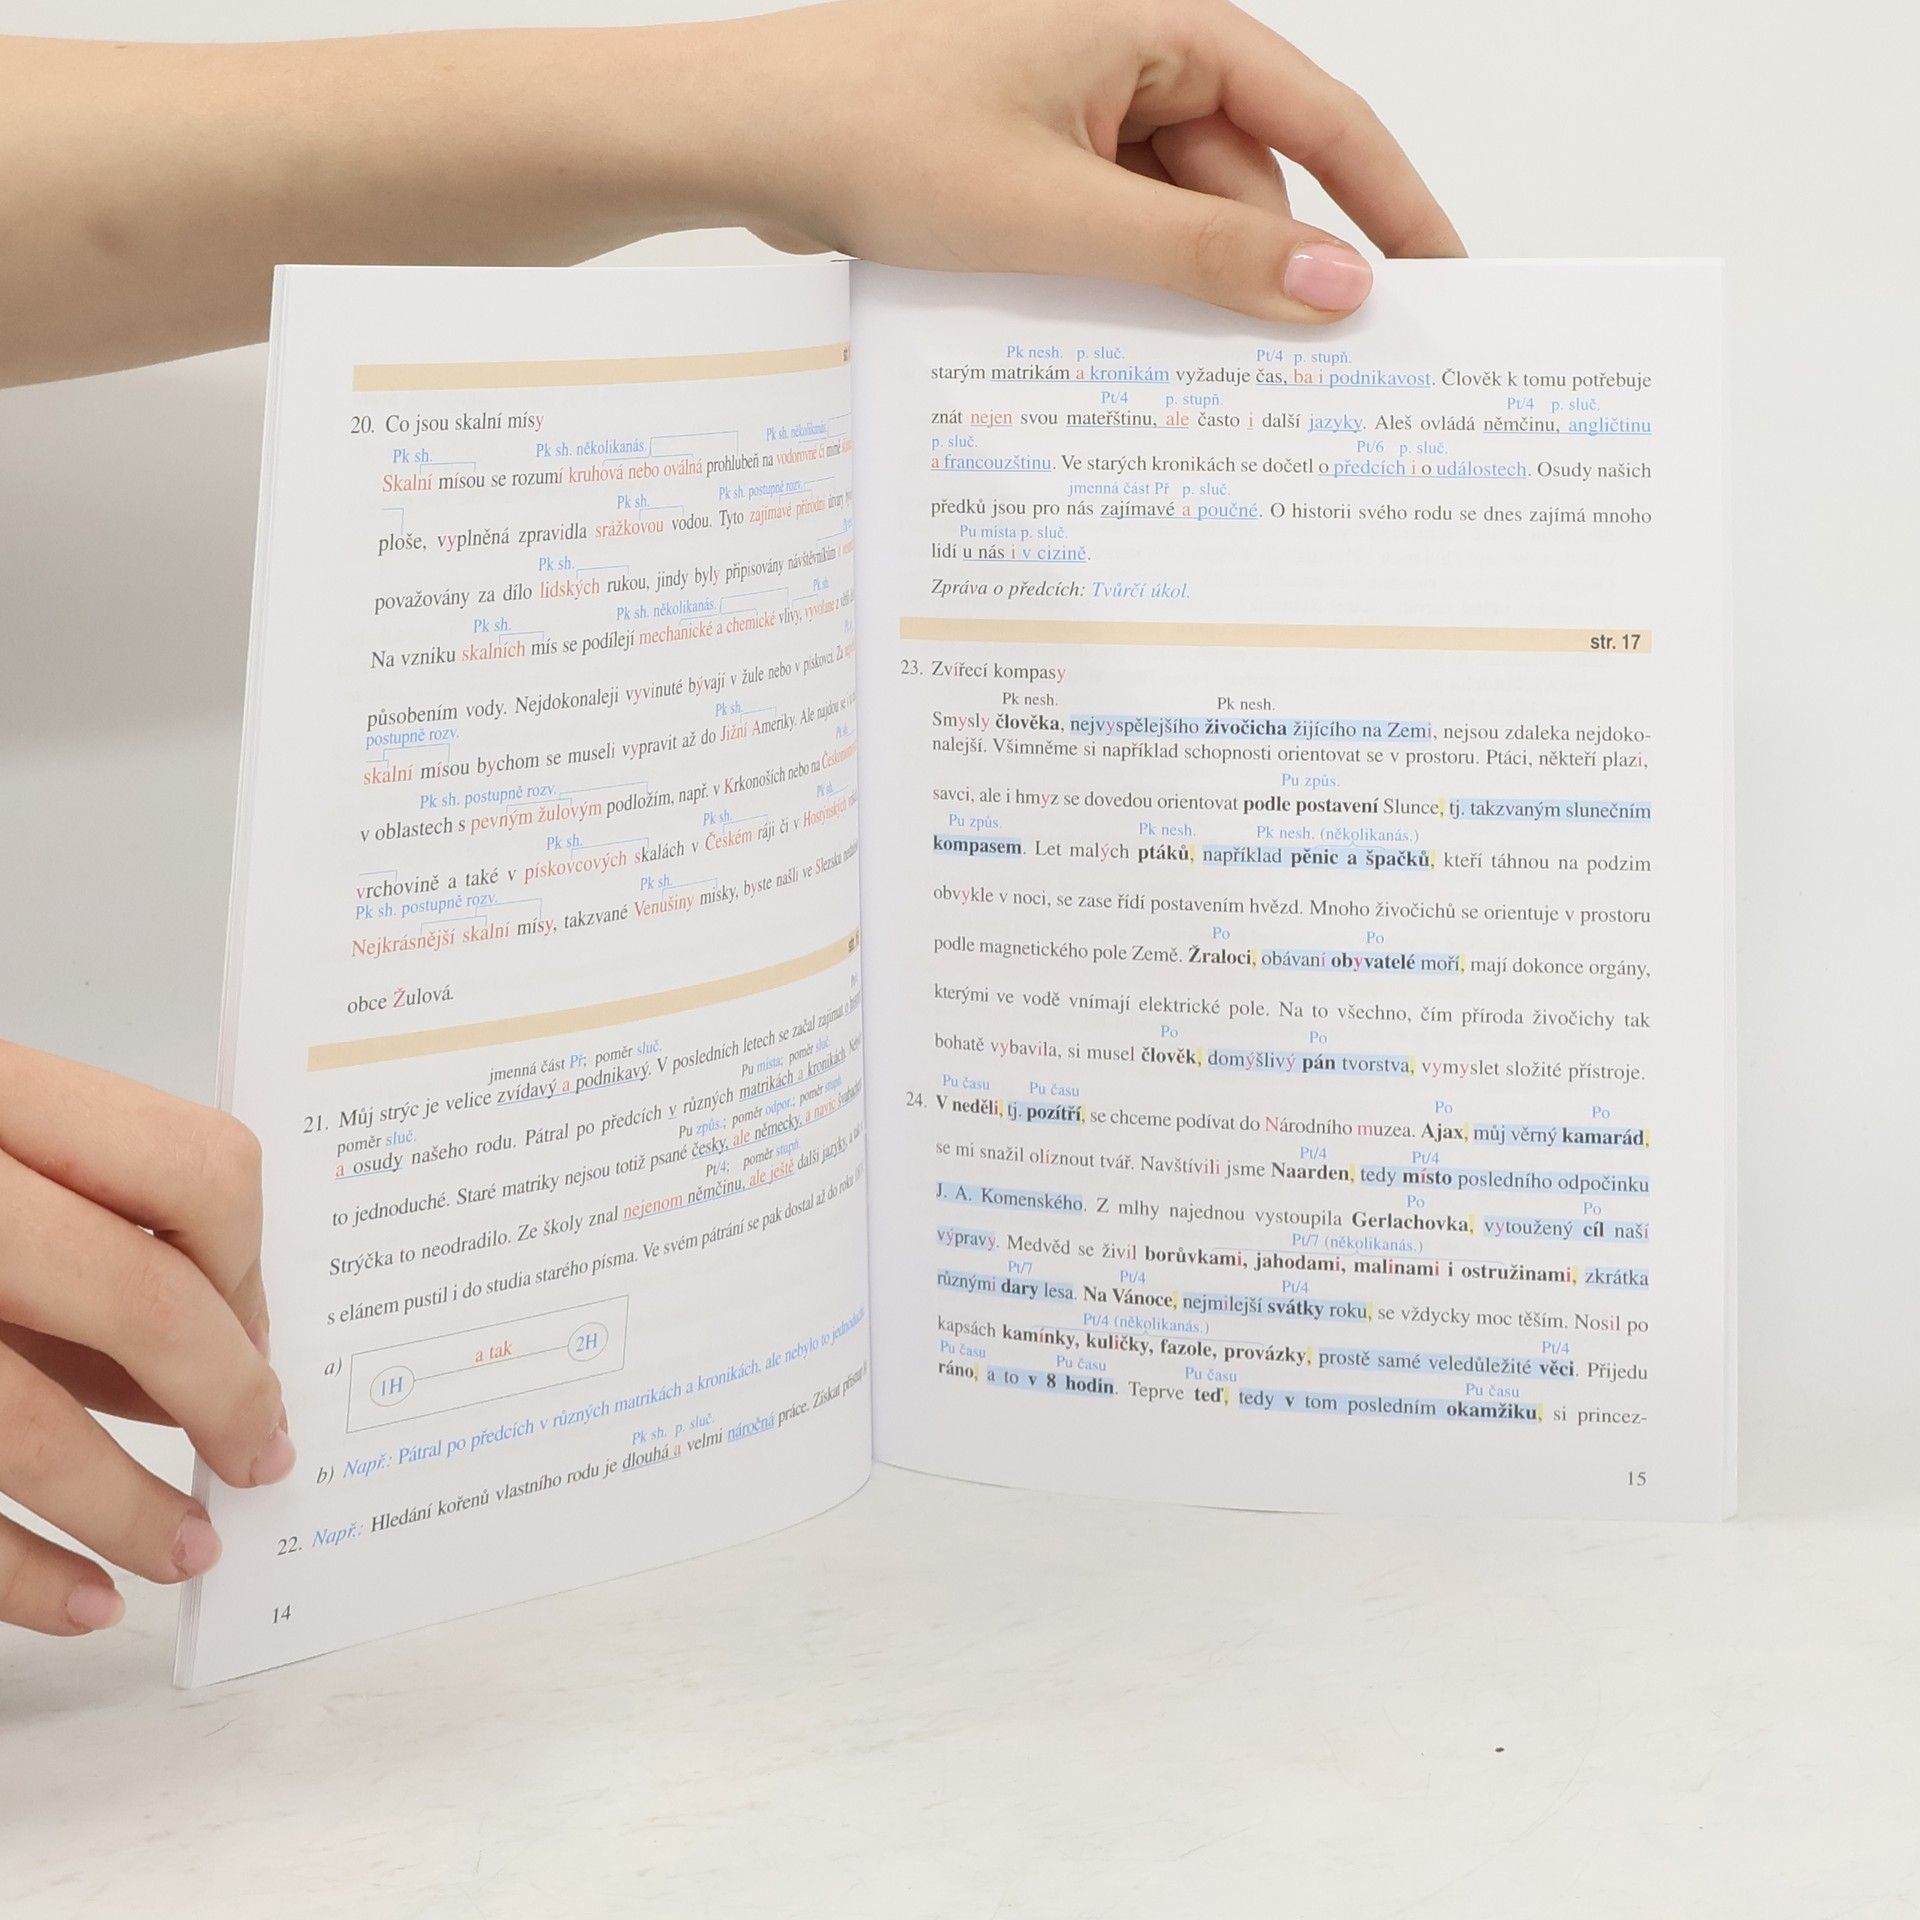 20. Co jsou skalní mísy
Pk sh. Pk sh. několikanás. Pk sh. několikanás.
Skalní mísou se rozumí kruhová nebo oválná prohlubeň na vodorovné či mírně
Pk sh. Pk sh. postupně rozv.
ploše, vyplněná zpravidla srážkovou vodou. Tyto zajímavé přírodní útvary
Pk sh.
považovány za dílo lidských rukou, jindy byly připisovány návštěvníkům
Pk sh. Pk sh. několikanás. Pk sh.
Na vzniku skalních mís se podílejí mechanické a chemické vlivy, vyvolané z
působením vody. Nejdokonaleji vyvinuté bývají v žule nebo v pískovci. Za
postupně rozv. Pk sh.
skalní mísou bychom se museli vypravit až do Jižní Ameriky. Ale najdou se i
Pk sh. postupně rozv.
v oblastech s pevným žulovým podložím, např. v Krkonoších nebo na
Pk sh. Pk sh. Pk sh.
vrchovině a také v pískovcových skalách v Českém ráji či v Hostýnských
Pk sh. postupně rozv. Pk sh.
Nejkrásnější skalní mísy, takzvané Venušiny misky, byste našli ve Slezsku
obce Žulová.
jmenná část Př; poměr sluč.
21. Můj strýc je velice zvídavý a podnikavý. V posledních letech se začal zajímat o
poměr sluč. Pu místa; poměr sluč.
a osudy našeho rodu. Pátral po předcích v různých matrikách a kronikách.
Pu způs.; poměr odpor.; poměr stupň.
to jednoduché. Staré matriky nejsou totiž psané česky, ale německy, a navíc
Pt/4; poměr stupň.
Strýčka to neodradilo. Ze školy znal nejenom němčinu, ale ještě další jazyky, a tak
s elánem pustil i do studia starého písma. Ve svém pátrání se pak dostal až do roku
a) 1H a tak 2H
b) Např.: Pátral po předcích v různých matrikách a kronikách, ale nebylo to jednoduché.
Pk sh. p. sluč.
22. Např.: Hledání kořenů vlastního rodu je dlouhá a velmi náročná práce. Získat přístup
14
Pk nesh. p. sluč. Pt/4 p. stupň.
starým matrikám a kronikám vyžaduje čas, ba i podnikavost. Člověk k tomu potřebuje
Pt/4 p. stupň. Pt/4 p. sluč.
znát nejen svou mateřštinu, ale často i další jazyky. Aleš ovládá němčinu, angličtinu
p. sluč. Pt/6 p. sluč.
a francouzštinu. Ve starých kronikách se dočetl o předcích i o událostech. Osudy našich
jmenná část Př p. sluč.
předků jsou pro nás zajímavé a poučné. O historii svého rodu se dnes zajímá mnoho
Pu místa p. sluč.
lidí u nás i v cizině.
Zpráva o předcích: Tvůrčí úkol.
str. 17
23. Zvířecí kompasy
Pk nesh. Pk nesh.
Smysly člověka, nejvyspělejšího živočicha žijícího na Zemi, nejsou zdaleka nejdoko-
nalejší. Všimněme si například schopnosti orientovat se v prostoru. Ptáci, někteří plazi,
Pu způs.
savci, ale i hmyz se dovedou orientovat podle postavení Slunce, tj. takzvaným slunečním
Pu způs. Pk nesh. Pk nesh. (několikanás.)
kompasem. Let malých ptáků, například pěnic a špačků, kteří táhnou na podzim
obvykle v noci, se zase řídí postavením hvězd. Mnoho živočichů se orientuje v prostoru
Po Po
podle magnetického pole Země. Žraloci, obávaní obyvatelé moří, mají dokonce orgány,
kterými ve vodě vnímají elektrické pole. Na to všechno, čím příroda živočichy tak
Po Po
bohatě vybavila, si musel člověk, domýšlivý pán tvorstva, vymyslet složité přístroje.
Pu času Pu času Po Po
24. V neděli, tj. pozítří, se chceme podívat do Národního muzea. Ajax, můj věrný kamarád,
Pt/4 Pt/4
se mi snažil olíznout tvář. Navštívili jsme Naarden, tedy místo posledního odpočinku
Po Po
J. A. Komenského. Z mlhy najednou vystoupila Gerlachovka, vytoužený cíl naší
Pt/7 (několikanás.)
výpravy. Medvěd se živil borůvkami, jahodami, malinami i ostružinami, zkrátka
Pt/7 Pt/4 Pt/4
různými dary lesa. Na Vánoce, nejmilejší svátky roku, se vždycky moc těším. Nosil po
Pt/4 (několikanás.) Pt/4
kapsách kamínky, kuličky, fazole, provázky, prostě samé veledůležité věci. Přijedu
Pu času Pu času Pu času Pu času
ráno, a to v 8 hodin. Teprve teď, tedy v tom posledním okamžiku, si princez-
15